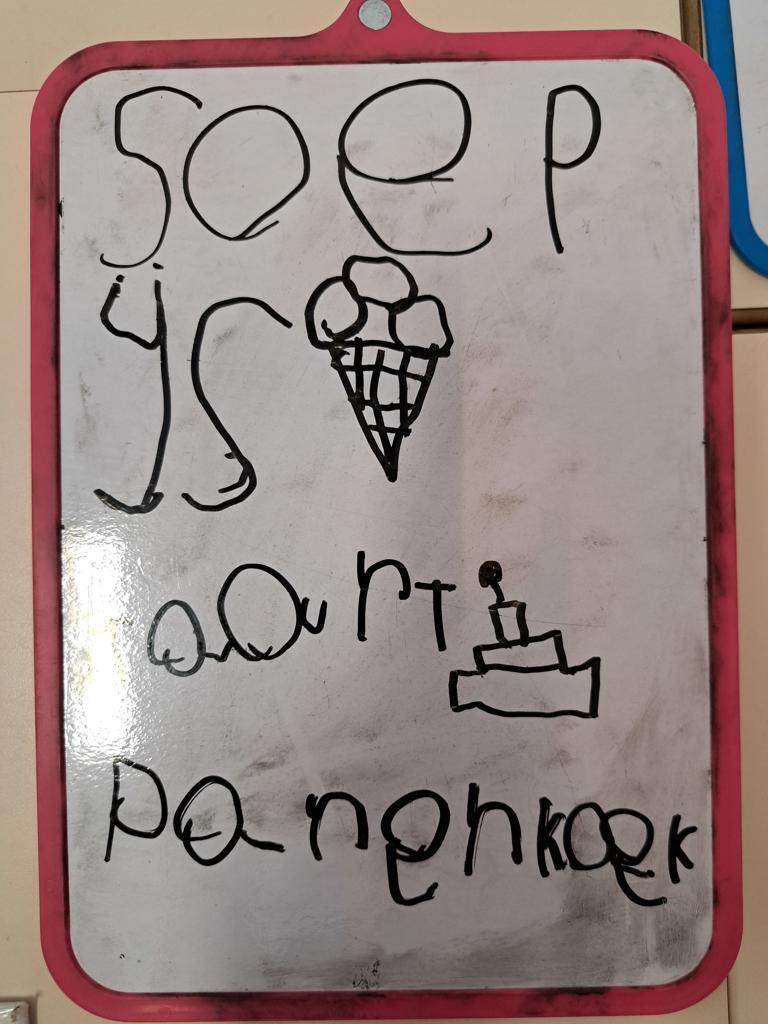 soep
ijs
aart
panenkoek